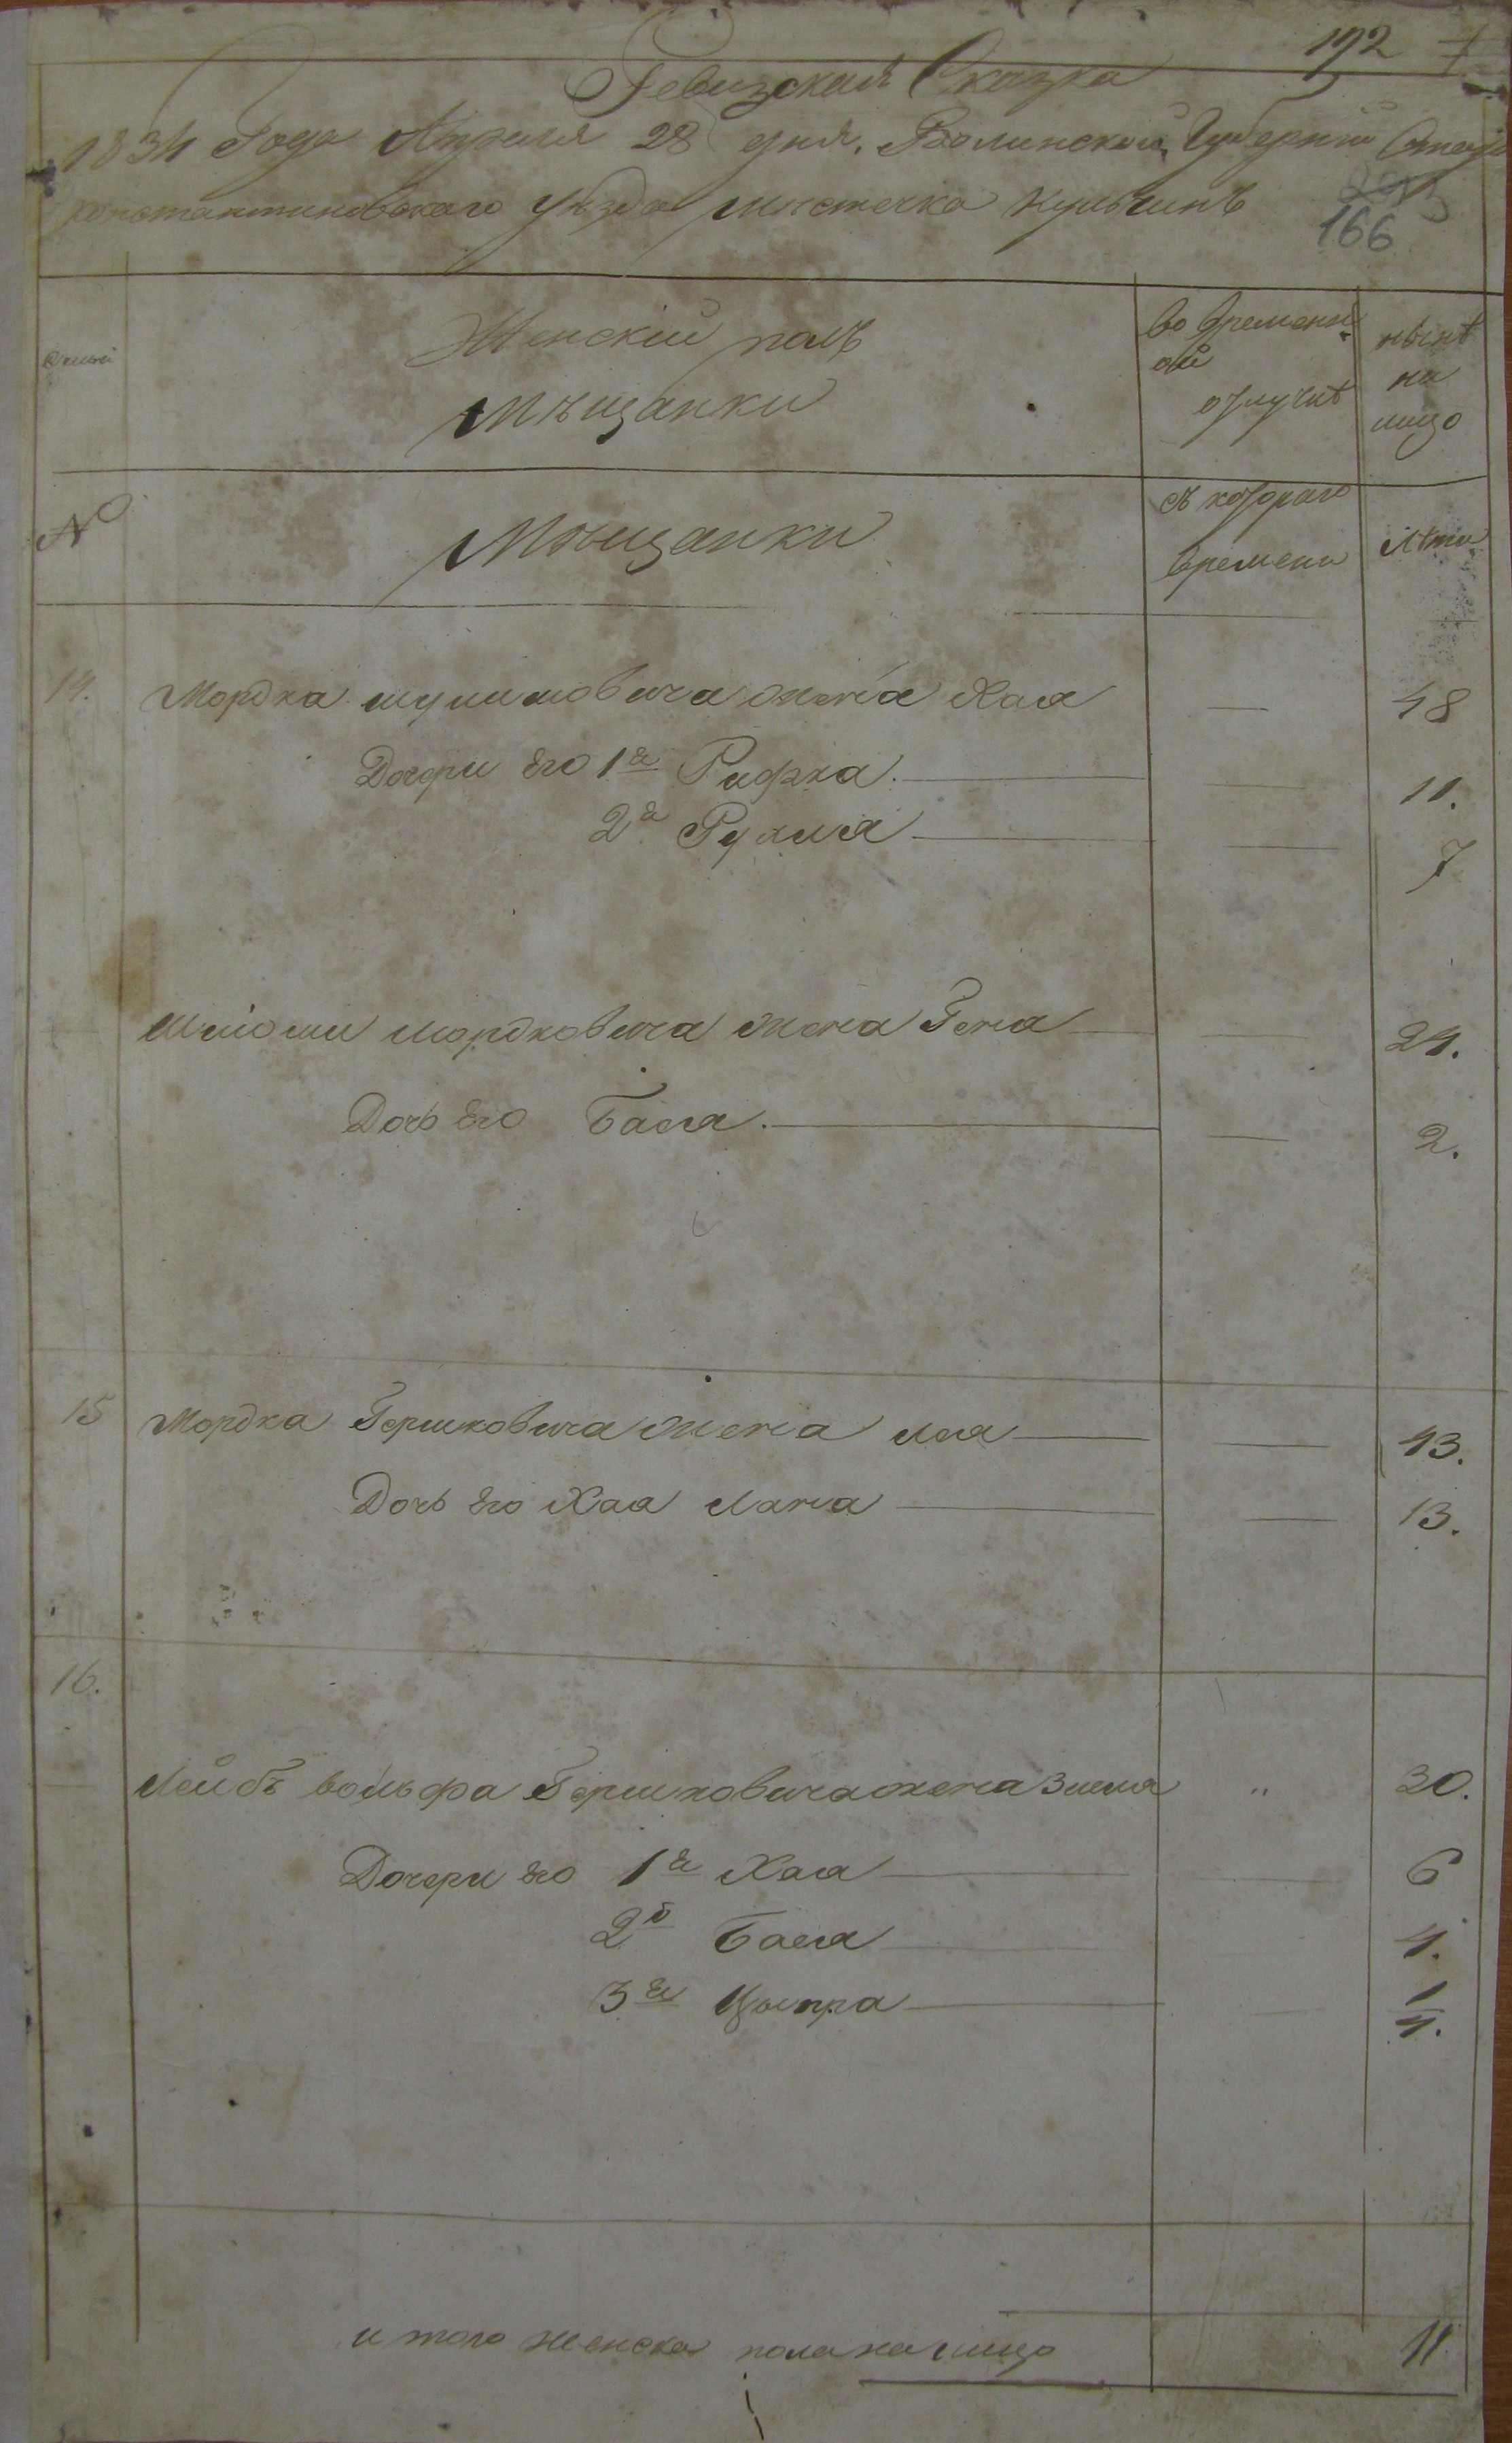 192
Ревизская Сказка
1834 Года Апреля 28 дня. Волинской Губернии Старо
константиновскаго уезда местечка Кульчинъ
166
Женскій полъ
мѣщанки
во временн
ой
отлучкѣ
нынѣ
на
лицо
N
Мѣщанки
съ котораго
времени
Лѣта
14. Мордка шулимовича жена Хая 48
Дочери его 1я Рифка. 11.
2я Рухля 7
Мордковича жена Гена 24.
Дочь его Бася. 2.
15 Мордка Гершковича жена Лея 43.
Дочь его Хая Лана 13.
16.
Лейбъ вольфа Гершковича жена Зисля " 30.
Дочери его 1я Хая 6
2я Бася 4.
3я Цыпра 1/4.
и того женска пола на лицо 11